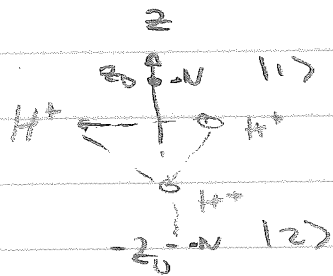 Z
Z₀ N |1⟩
H⁺ H⁺
H⁺
-Z₀ N |2⟩